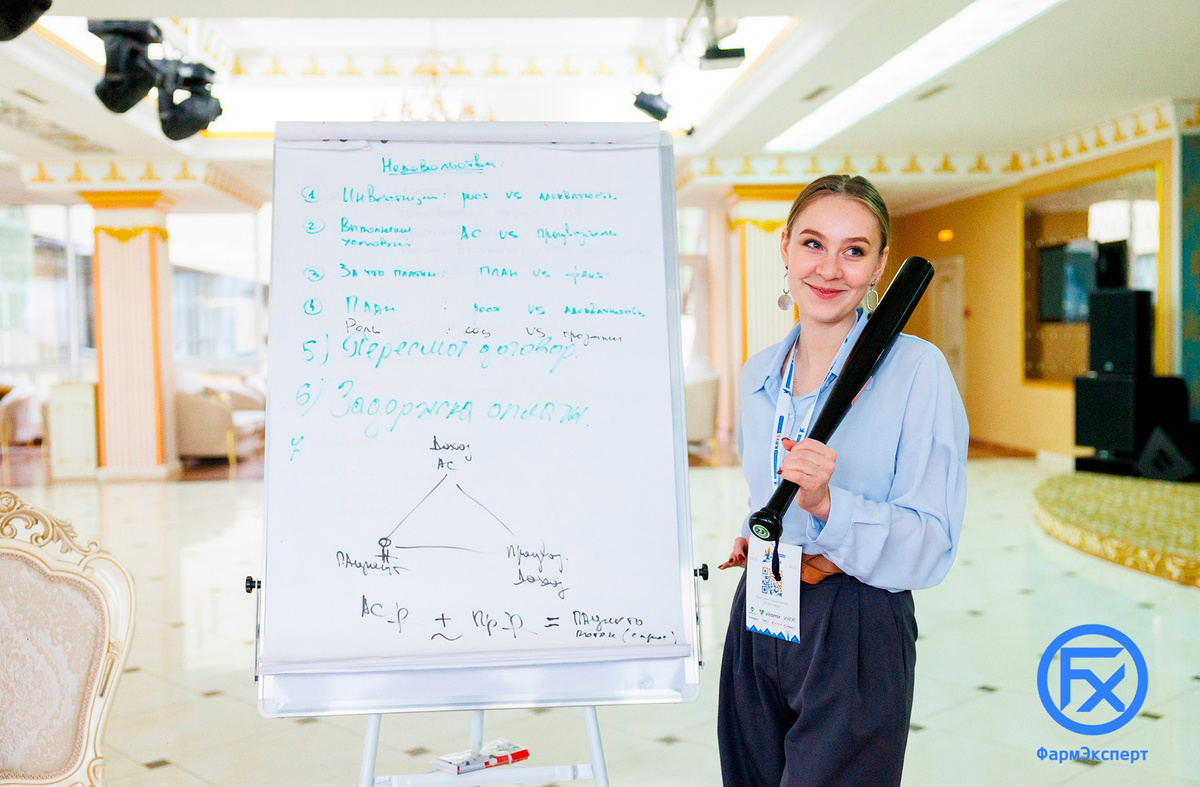 Недовольства:
1 Инвестиции: рост vs адекватность
2 Выполнение условий АС vs производитель
3 За что платим: ПЛАН vs факт
4 План : рост vs адекватность
Роль : соц vs продажи
5) Пересмот договор.
6) Задержка оплаты.
7
Доход
АС
ПАциент
Производ.
Доход
АС_р + Пр_р = ПАциенто
поток (сервис)
vitamir
FX
ФармЭксперт